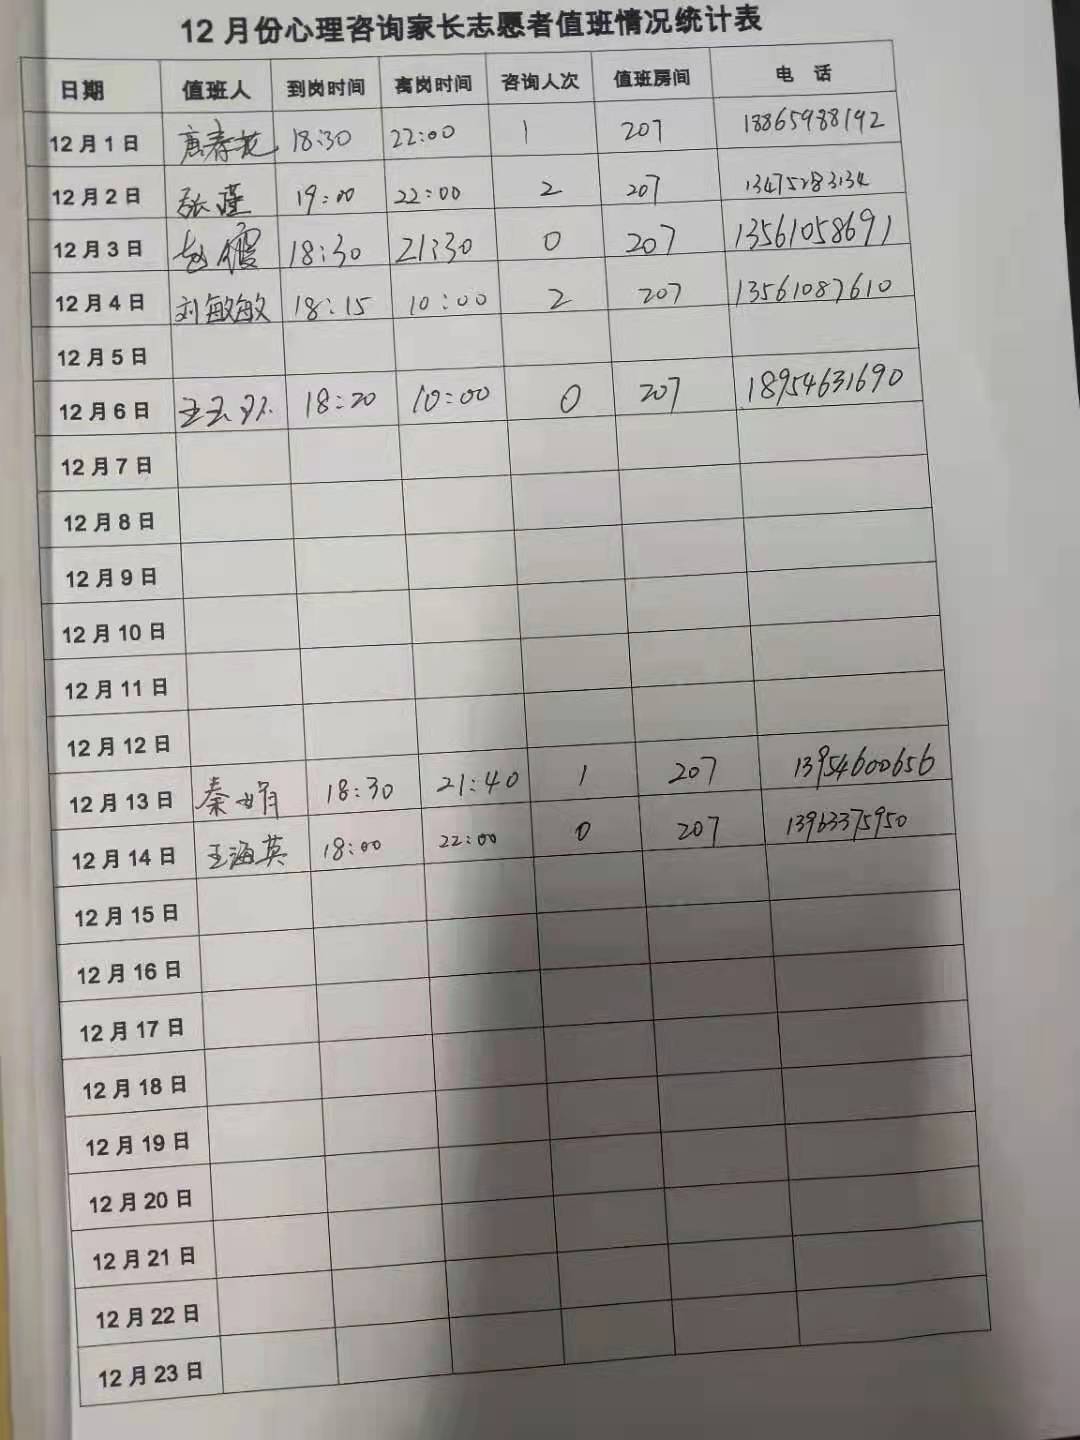 12月份心理咨询家长志愿者值班情况统计表
日期 值班人 到岗时间 离岗时间 咨询人次 值班房间 电 话
12月1日 唐春花 18:30 22:00 1 207 18865988192
12月2日 张莲 19:00 22:00 2 207 13475283134
12月3日 赵霞 18:30 21:30 0 207 13561058691
12月4日 刘敏敏 18:15 10:00 2 207 13561087610
12月5日
12月6日 王玉 18:20 10:00 0 207 18954631690
12月7日
12月8日
12月9日
12月10日
12月11日
12月12日
12月13日 秦娟 18:30 21:40 1 207 13954600656
12月14日 王海英 18:00 22:00 0 207 13963375950
12月15日
12月16日
12月17日
12月18日
12月19日
12月20日
12月21日
12月22日
12月23日